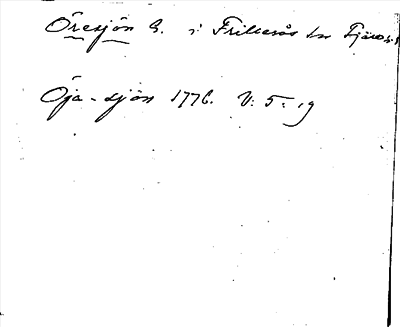 Öresjön G. i Frillesås sn Fjäre h
Öja-sjön 1776. V: 5: 19